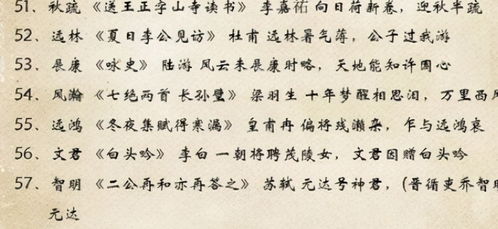 51、秋疏 《送王正字山寺读书》 李嘉祐 向日荷新卷，迎秋半疏
52、远林 《夏日李公见访》 杜甫 远林暑气薄，公子过我游
53、畏康 《咏史》 陆游 风云未畏康时略，天地能知许国心
54、风瀚 《七绝两首 长孙璧》 梁羽生 十年梦醒相思泪，万里西风
55、远鸿 《冬夜集赋得寒漏》 皇甫冉 偏将残濑杂，乍与远鸿哀
56、文君 《白头吟》 李白 一朝将聘茂陵女，文君因赠白头吟
57、智明 《二公再和亦再答之》 苏轼 元达号神君，(晋循吏乔智明
元达